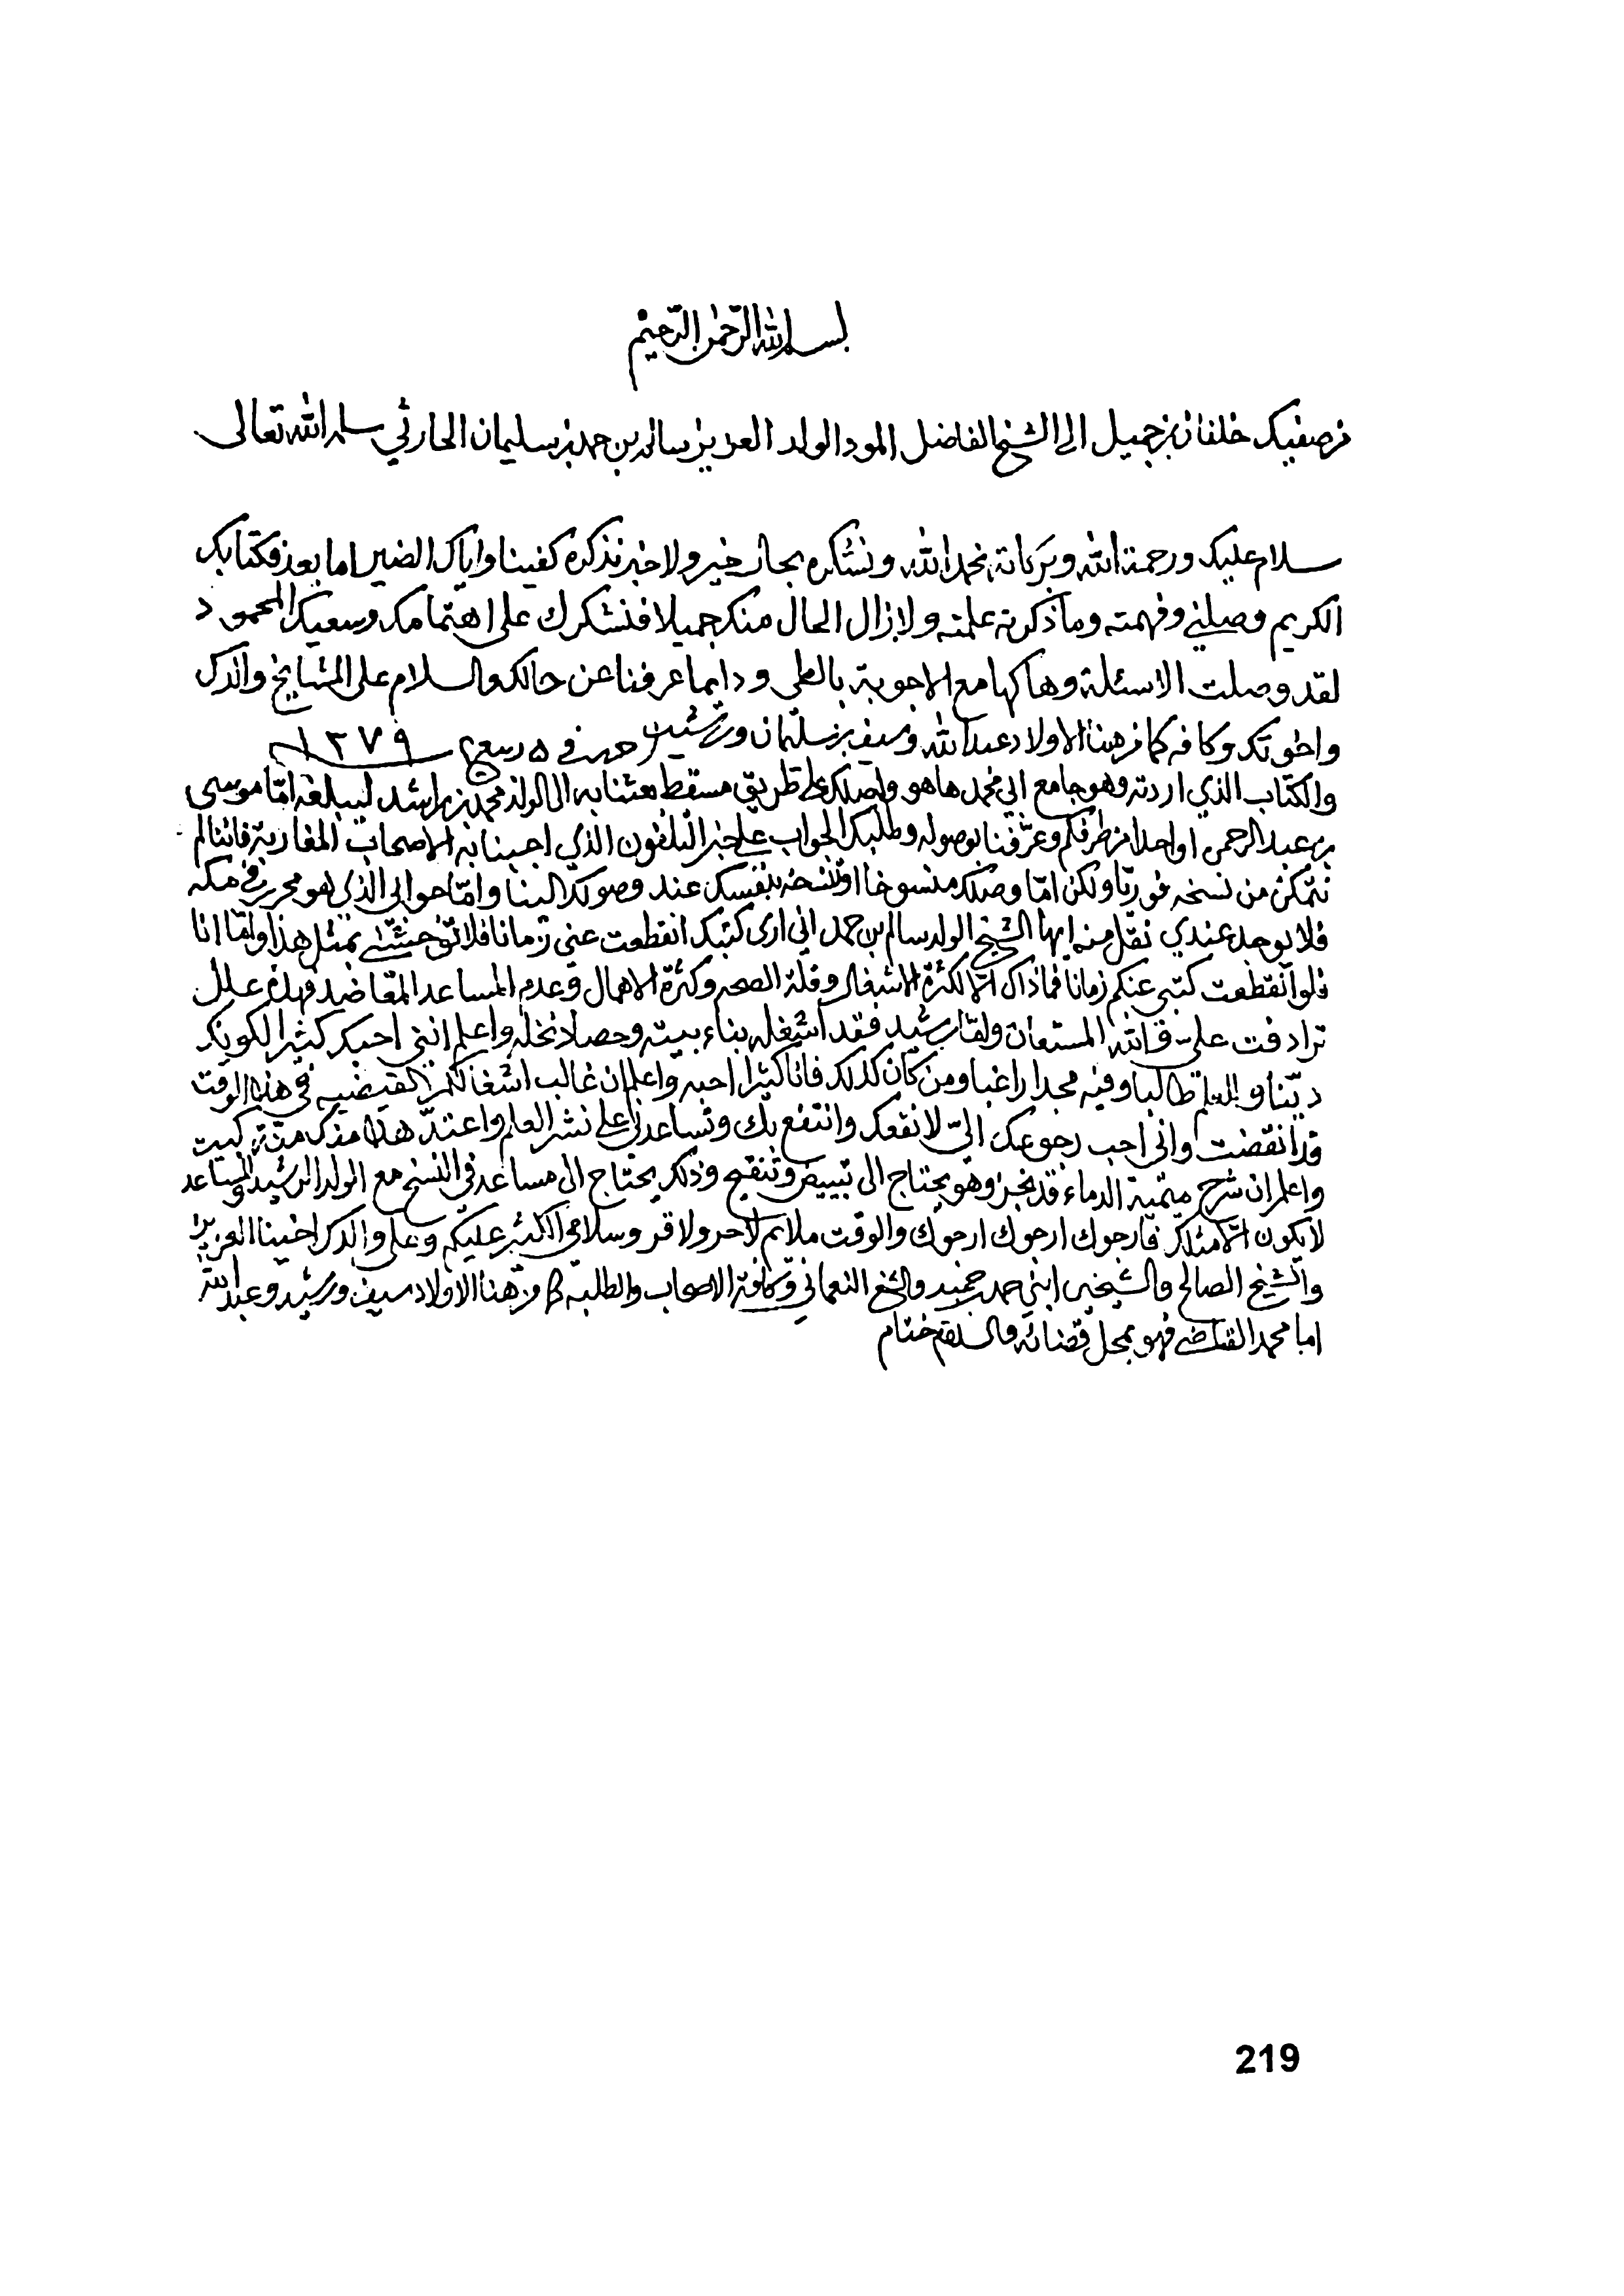 بسم الله الرحمن الرحيم
من صفيك خلفان بن جميل الى الشيخ الفاضل المود الولد العزيز سالم بن حمد بن سليمان الحارثي سلمه الله تعالى
سلام عليك ورحمة الله وبركاته نحمد الله ونشكره بحال خير ولا خبر نذكره كفينا واياك الضير اما بعد فكتابك
الكريم وصلني وفهمته وما ذكرته علمته ولا زال الحال منك جميلا فنشكرك على اهتمامك وسعيك المحمود
لقد وصلت الاسئلة وهاكها مع الاجوبة بالطي ودايما عرفنا عن حالك والسلام على المشايخ والدك
واخوتك وكافه كما من هنا الاولاد عبد الله وسيف بن سليمان ورشيد حرر في ٥ ربيع ٢ ١٣٧٩
والكتاب الذي اردته وهو جامع ابي محمد ها هو واصلك على طريق مسقط بعثنا به الى الولد محمد بن راشد ليبلغه اما موسى
بن عبد الرحمن او احدا من طرفكم وعرفنا بوصوله وطلبك الجواب على خبر التلفون الذي اجبنا به الاصحاب المغاربة فاننا لم
نتمكن من نسخه فوريا ولكن اما وصلك منسوخا او تنسخه بنفسك عند وصولك الينا واما جوابي الذي هو محرر في مكه
فلا يوجد عندي نقل منه ايها الشيخ الولد سالم بن حمد اني ارى كتبك انقطعت عني زمانا فلا توحشني بمثل هذا واما انا
فلو انقطعت كتبي عنكم زمانا فما ذاك الا لكثرة الاشغال وقلة الصحه وكثرة الاهمال وعدم المساعد المعاضد فهذه علل
ترادفت علي والله المستعان واما رشيد فقد اشغله بناء بيته وحصاد نخله واعلم انني احبك كثيرا لكونك
دينا وللعلم طالبا وفيه مجدا راغبا ومن كان كذلك فانا كثيرا احبه واعلم ان غالب اشغالكم القيضيه في هذا الوقت
قد انقضت واني احب رجوعك الي لانفعك وانتفع بك وتساعدني على نشر العلم واعتد هذا منك منة
واعلم ان شرح ميمية الدماء قد نجز وهو يحتاج الى تبييض وتنقيح وذلك يحتاج الى مساعد في النسخ مع الولد الرشيد والمساعد
لا يكون الا مثلك فارجوك ارجوك ارجوك والوقت ملائم لا حر ولا قر وسلامي الكثير عليكم وعلى والدك اخينا العزيز
والشيخ الصالح والشيخين ابني حمد والشيخ النعماني وكافة الاصحاب والطلبه كما من هنا الاولاد سيف ورشيد وعبد الله
اما محمد القاضي فهو بمحل قضائه والسلام ختام
219